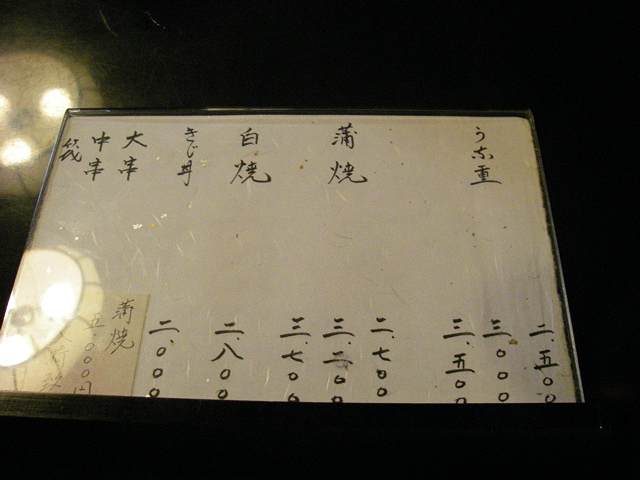 うな重
二.五〇〇
三.〇〇〇
三.五〇〇
蒲焼
二.七〇〇
三.二〇〇
三.七〇〇
白焼
二.八〇〇
きじ丼
二.〇〇〇
大串
中串
蒲焼
五.〇〇〇円